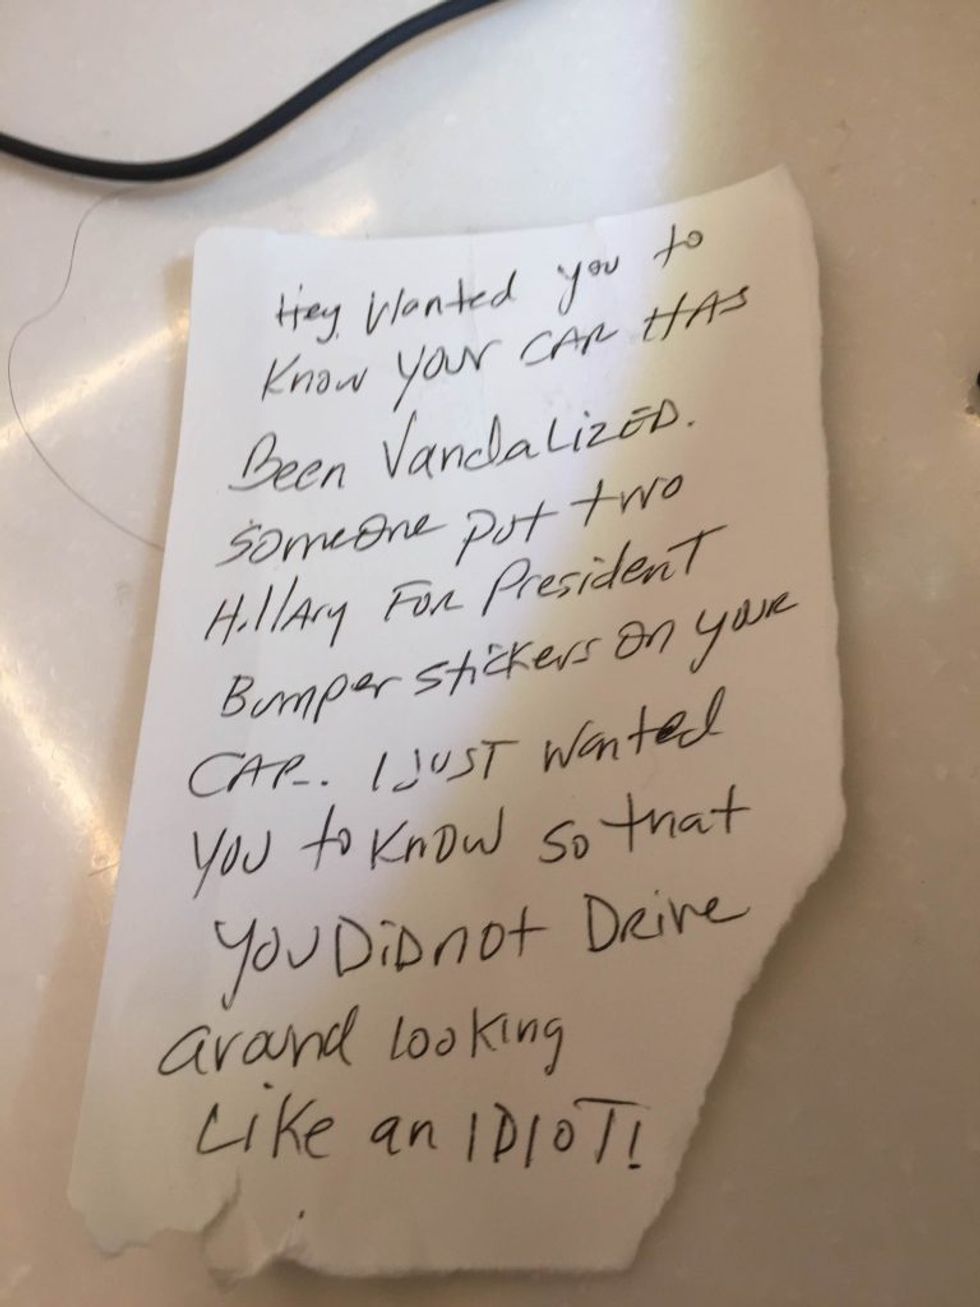 Hey, Wanted you to
Know YOUR CAR HAS
Been VandaLizED.
SomeOne put two
HillAry FOR President
Bumper stickers On YOUR
CAR. I JUST Wanted
YOU to KNOW SO that
YOU DiD not DRive
around Looking
LiKe an IDIOT!